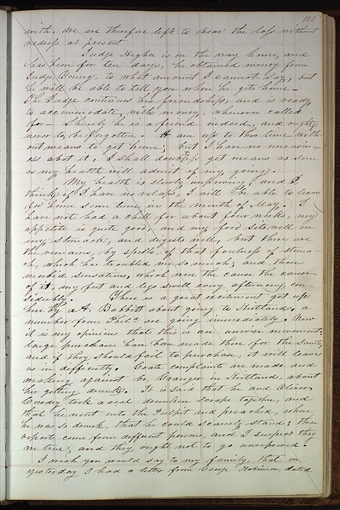 130
with, we are therefore left to bear the loss without
redress at present.
Judge Higbee is on the way home, and
has been for ten days, he obtained money from
Judge Young, to what amount I cannot say, but
he will be able to tell you when he gets home.
The Judge continues his friendship, and is ready
to accommodate, with money, whenever called
for. Surely he is a friend indeed, and ought
never to be forgotten. I am up to this time with
out means to get home; but I have no uneasin-
ess about it, I shall doubtless get means as soon
as my health will admit of my going.
My health is slowly improving, and I
think if I have no relaps, I will be able to leave
for home some time in the month of May. I
have not had a chill for about four weeks, my
appetite is quite good, and my food sits well on
my stomach, and digests well, but there are
the remains, by spells, of that of stoma-
ch, which has troubled me so much, and those
morbid sensations, which were the cause
of it; my feet and legs swell every afternoon, con
siderably. There is a great excitement got up
here by a A. Babbitt about going to Kirtland, a
number from there are going immediately. Now
it is my opinion that this is an unwise movement.
Large purchases have been made there for the Saints
and if they should fail to purchase, it will leave
us in difficulty. Great complaints are made and
making against Br. Granger in Kirtland, about
his getting drunk. It is said that he and Oliver
Cowdry took a real drunken scrape together, and
that he went into the Pulpit and preached, when
he was so drunk, that he could scarcely stand; these
reports come from different persons, and I suspect they
are true; and they ought not to go unreproved.
I wish you would say to my family, that on
yesterday I had a letter from George Robinson dated